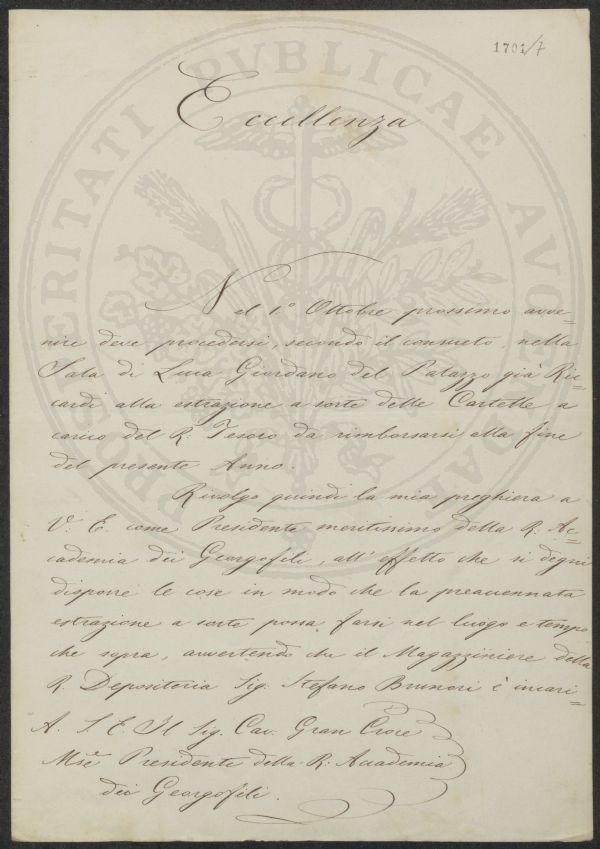 1701/7
Eccellenza
Nel 1º Ottobre prossimo avve=
nire deve procedersi, secondo il consueto, nella
Sala di Luca Giordano del Palazzo già Ric=
cardi alla estrazione a sorte delle Cartelle a
carico del R: Tesoro da rimborsarsi alla fine
del presente Anno.
Rivolgo quindi la mia preghiera a
V. E. come Presidente meritissimo della R. Ac=
cademia dei Georgofili, all'effetto che si degni
disporre le cose in modo che la preaccennata
estrazione a sorte possa farsi nel luogo e tempo
che sopra, avvertendo che il Magazziniere della
R. Depositeria Sig. Stefano Brunori è incari=
A. S. E. Il Sig. Cav. Gran Croce
Mse Presidente della R: Accademia
dei Georgofili.
PROSPERITATI PVBLICAE AVGENDAE